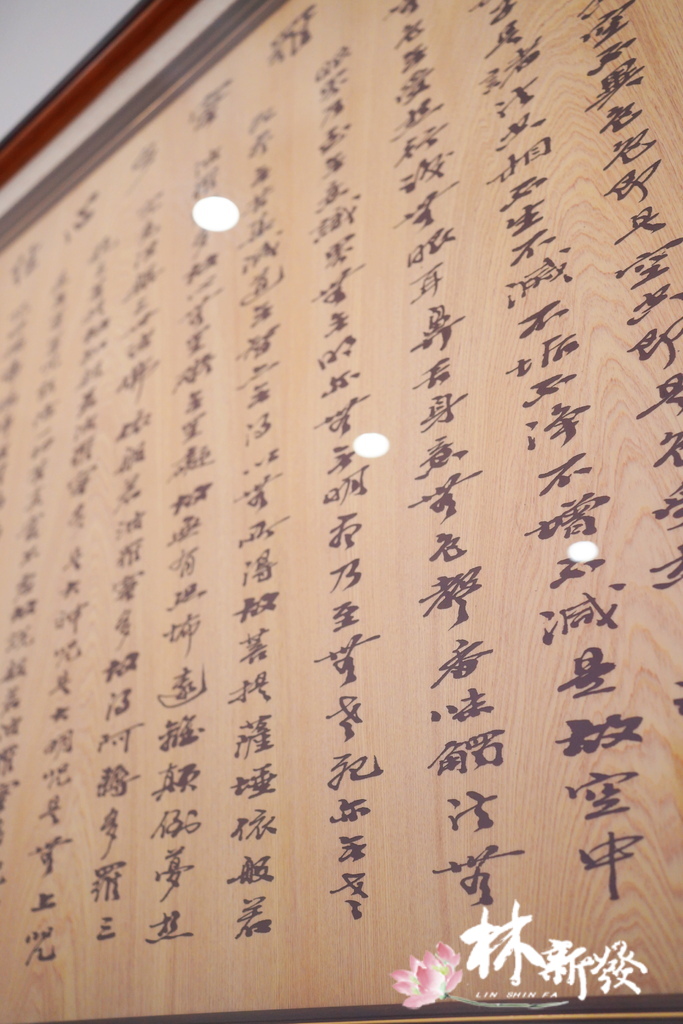 空不異色色即是空空即是色受
諸法空相不生不滅不垢不淨不增不減是故空中
無色無受想行識無眼耳鼻舌身意無色聲香味觸法無
界乃至無意識界無無明亦無无明尽乃至無老死亦无老
無苦集滅道無智亦無得以無所得故菩提薩埵依般若
波羅蜜多故心無罣礙無罣礙故無有恐怖遠離顛倒夢想
究竟涅槃三世諸佛依般若波羅蜜多故得阿耨多羅三
故知般若波羅蜜多是大神咒是大明咒是無上咒
能除一切苦真實不虛故說般若波羅蜜多
林新發
LIN SHIN FA